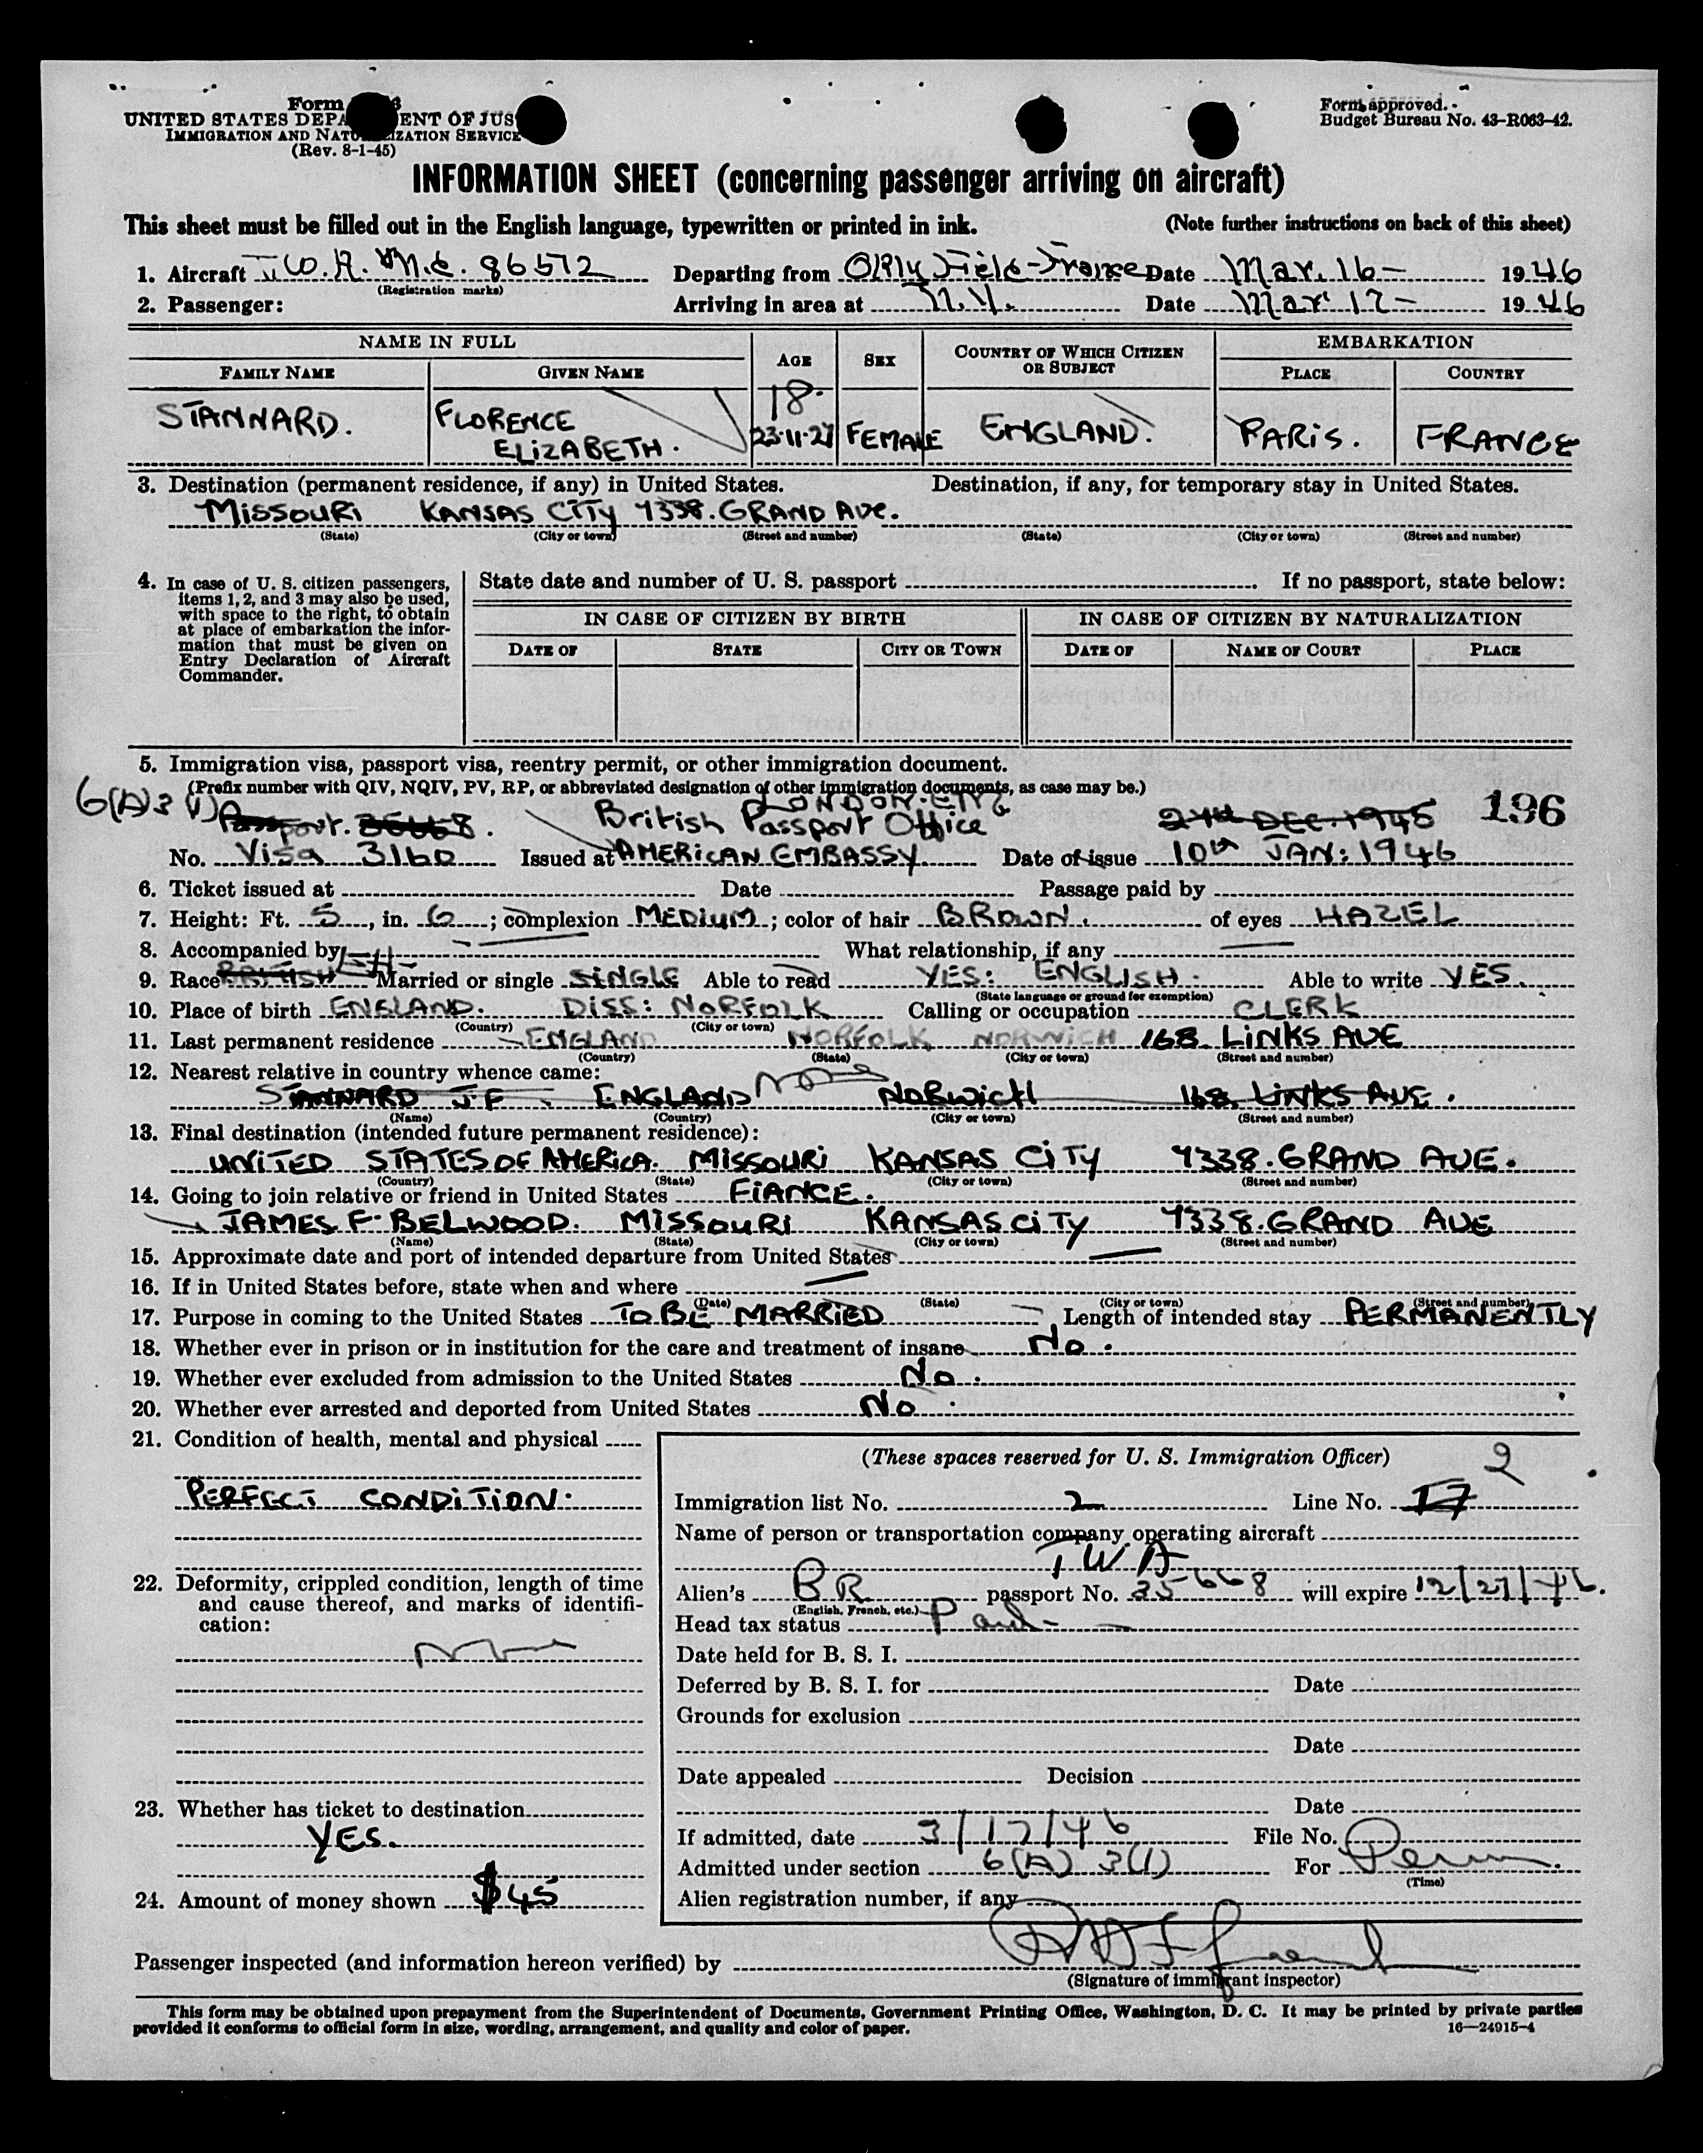 Form
UNITED STATES DEPA ENT OF JUS
IMMIGRATION AND NATU IZATION SERVICE
(Rev. 8-1-45)
Form approved.
Budget Bureau No. 43-R063-42.
INFORMATION SHEET (concerning passenger arriving on aircraft)
This sheet must be filled out in the English language, typewritten or printed in ink. (Note further instructions on back of this sheet)
1. Aircraft 86572 Departing from Field-France Date Mar. 16- 1946
(Registration marks)
2. Passenger: Arriving in area at N.Y. Date Mar 17- 1946
NAME IN FULL AGE SEX COUNTRY OF WHICH CITIZEN OR SUBJECT EMBARKATION
FAMILY NAME GIVEN NAME PLACE COUNTRY
18.
STANNARD. FLORENCE ELIZABETH. 23-11-27 FEMALE ENGLAND. PARIS. FRANCE
3. Destination (permanent residence, if any) in United States. Destination, if any, for temporary stay in United States.
MISSOURI KANSAS CITY 7338. GRAND AVE.
(State) (City or town) (Street and number) (State) (City or town) (Street and number)
4. In case of U. S. citizen passengers, items 1, 2, and 3 may also be used, with space to the right, to obtain at place of embarkation the information that must be given on Entry Declaration of Aircraft Commander.
State date and number of U. S. passport If no passport, state below:
IN CASE OF CITIZEN BY BIRTH IN CASE OF CITIZEN BY NATURALIZATION
DATE OF STATE CITY OR TOWN DATE OF NAME OF COURT PLACE
5. Immigration visa, passport visa, reentry permit, or other immigration document.
(Prefix number with QIV, NQIV, PV, RP, or abbreviated designation of other immigration documents, as case may be.)
6(A)3(1) Passport. 35668. British Passport Office LONDON. ENG 24th DEC. 1945 196
No. Visa 3160 Issued at AMERICAN EMBASSY Date of issue 10th JAN: 1946
6. Ticket issued at Date Passage paid by
7. Height: Ft. 5, in. 6; complexion MEDIUM; color of hair BROWN. of eyes HAZEL
8. Accompanied by What relationship, if any
9. Race BRITISH Married or single SINGLE Able to read YES: ENGLISH. Able to write YES.
(State language or ground for exemption)
10. Place of birth ENGLAND. DISS: NORFOLK Calling or occupation CLERK
(Country) (City or town)
11. Last permanent residence ENGLAND NORFOLK NORWICH 168 LINKS AVE
(Country) (State) (City or town) (Street and number)
12. Nearest relative in country whence came: None
STANNARD J.F. ENGLAND NORWICH 168 LINKS AVE.
(Name) (Country) (City or town) (Street and number)
13. Final destination (intended future permanent residence):
UNITED STATES OF AMERICA. MISSOURI KANSAS CITY 7338. GRAND AVE.
(Country) (State) (City or town) (Street and number)
14. Going to join relative or friend in United States FIANCE.
JAMES F. BELWOOD. MISSOURI KANSAS CITY 7338. GRAND AVE
(Name) (State) (City or town) (Street and number)
15. Approximate date and port of intended departure from United States
16. If in United States before, state when and where
(Date) (State) (City or town) (Street and number)
17. Purpose in coming to the United States TO BE MARRIED Length of intended stay PERMANENTLY
18. Whether ever in prison or in institution for the care and treatment of insane No.
19. Whether ever excluded from admission to the United States No.
20. Whether ever arrested and deported from United States No.
21. Condition of health, mental and physical
PERFECT CONDITION.
22. Deformity, crippled condition, length of time and cause thereof, and marks of identification:
None
23. Whether has ticket to destination
YES.
24. Amount of money shown $45
(These spaces reserved for U. S. Immigration Officer)
2
Immigration list No. 2 Line No. 17
Name of person or transportation company operating aircraft
TWA
Alien's BR passport No. 35668 will expire 12/27/46.
(English, French, etc.)
Head tax status Paid
Date held for B. S. I.
Deferred by B. S. I. for Date
Grounds for exclusion
Date
Date appealed Decision
Date
If admitted, date 3/17/46 File No.
Admitted under section 6(A) 3(1) For Perm.
(Time)
Alien registration number, if any
Passenger inspected (and information hereon verified) by
(Signature of immigrant inspector)
This form may be obtained upon prepayment from the Superintendent of Documents, Government Printing Office, Washington, D. C. It may be printed by private parties
provided it conforms to official form in size, wording, arrangement, and quality and color of paper. 16—24915-4